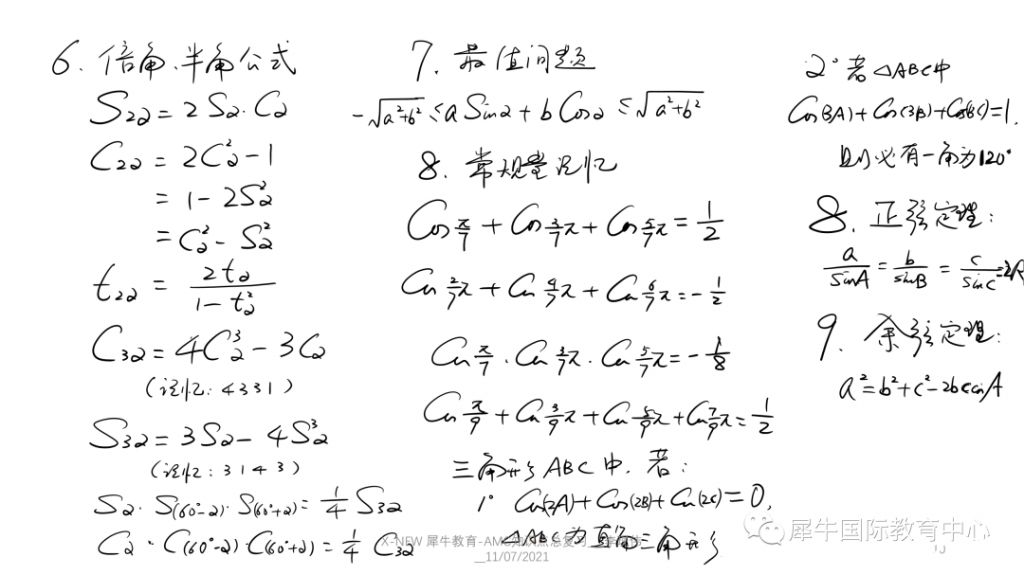 6. 倍角.半角公式
S2α = 2Sα·Cα
C2α = 2C²α - 1
= 1 - 2S²α
= C²α - S²α
t2α = 2tα / (1 - t²α)
C3α = 4C³α - 3Cα
(记忆: 4331)
S3α = 3Sα - 4S³α
(记忆: 3143)
Sα · S(60°-α) · S(60°+α) = 1/4 S3α
Cα · C(60°-α) · C(60°+α) = 1/4 C3α
7. 最值问题
-√(a²+b²) ≤ a Sinα + b Cosα ≤ √(a²+b²)
8. 常规登记忆
Cos π/7 + Cos 3/7π + Cos 5/7π = 1/2
Cos 2/7π + Cos 4/7π + Cos 6/7π = -1/2
Cos π/7 · Cos 3/7π · Cos 5/7π = -1/8
Cos π/9 + Cos 3/9π + Cos 5/9π + Cos 7/9π = 1/2
三角形 ABC 中. 若:
1° Cos(2A) + Cos(2B) + Cos(2C) = 0,
△ABC 为直角三角形
2° 若 △ABC 中
Cos(3A) + Cos(3B) + Cos(3C) = 1.
则必有一角为120°
8. 正弦定理:
a/sinA = b/sinB = c/sinC = 2R
9. 余弦定理:
a² = b² + c² - 2bccosA
X-NEW 犀牛教育-AMC
11/07/2021
犀牛国际教育中心